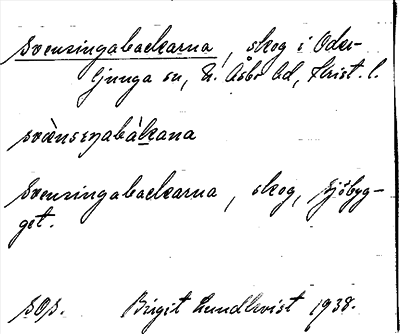 Svensingabackarna, skog i Oder-
ljunga sn, N. Åsbo hd, Krist. l.
svänseŋabákana
Svensingabackarna, skog, sjöbyg-
get.
sos. Birgit Lundkvist 1938.